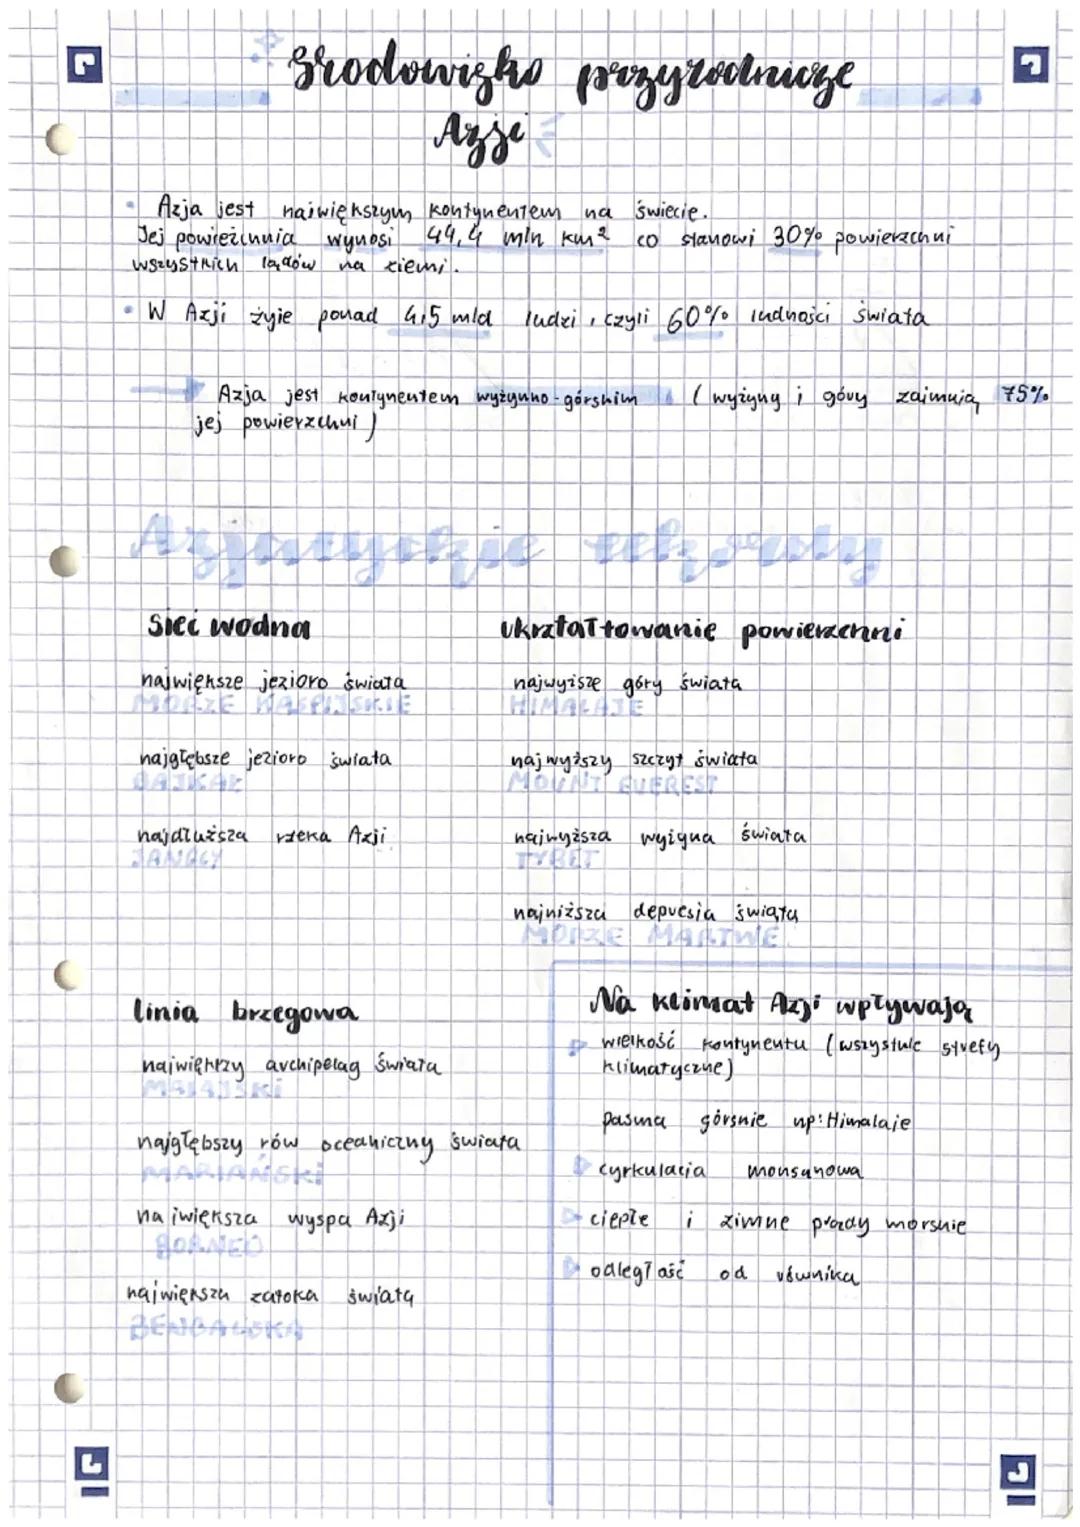 Środowisko przyrodnicze
Azji
Azja jest największym kontynentem na świecie.
Jej powierzchnia wynosi 44,4 mln km² co stanowi 30% powierzchni
wszystkich lądów na ziemi.
W Azji żyje ponad 4,5 mld ludzi, czyli 60% ludności świata
Azja jest kontynentem wyżynno-górskim (wyżyny i góry zajmują 75%
jej powierzchni)
Azjatyckie rekordy
Sieć wodna
największe jezioro świata
MORZE KASPIJSKIE
najgłębsze jezioro świata
BAJKAŁ
najdłuższa rzeka Azji
JANGCY
ukształtowanie powierzchni
najwyższe góry świata
HIMALAJE
najwyższy szczyt świata
MOUNT EVEREST
najwyższa wyżyna świata
TYBET
najniższa depresja świata
MORZE MARTWE
linia brzegowa
największy archipelag świata
MALAJSKI
najgłębszy rów oceaniczny świata
MARIAŃSKI
największa wyspa Azji
BORNEO
największa zatoka świata
BENGALSKA
Na klimat Azji wpływają
wielkość kontynentu (wszystkie strefy
klimatyczne)
pasma górskie np: Himalaje
cyrkulacja monsunowa
ciepłe i zimne prądy morskie
odległość od równika